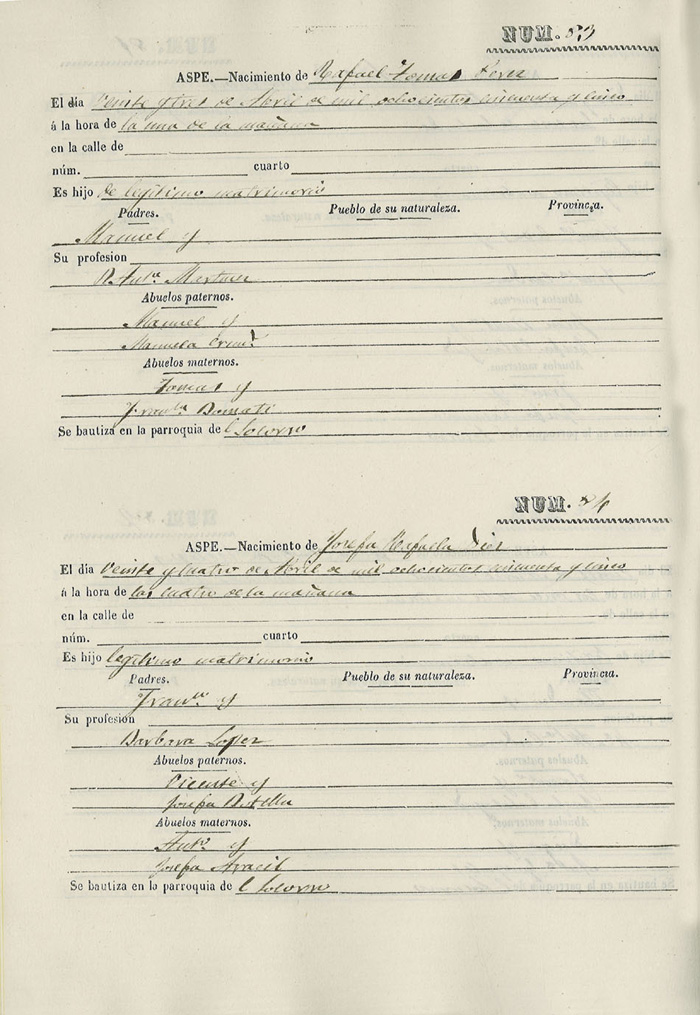 NUM. 53
ASPE.—Nacimiento de Rafael Tomas Perez
El día Veinte y tres de Abril de mil ochocientos cincuenta y cinco
á la hora de la una de la mañana
en la calle de
núm. cuarto
Es hijo de legitimo matrimonio
Padres. Pueblo de su naturaleza. Provincia.
Manuel y
Su profesion
R. Antª Martinez
Abuelos paternos.
Manuel y
Manuela
Abuelos maternos.
Tomas y
Franca
Se bautiza en la parroquia de l Socorro
NUM. 54
ASPE.—Nacimiento de Josefa Rafaela
El día Veinte y cuatro de Abril de mil ochocientos cincuenta y cinco
á la hora de las cuatro de la mañana
en la calle de
núm. cuarto
Es hijo legitimo matrimonio
Padres. Pueblo de su naturaleza. Provincia.
Franco y
Su profesión
Barbara Lopez
Abuelos paternos.
Vicente y
Josefa Botella
Abuelos maternos.
Anto y
Josefa Aracil
Se bautiza en la parroquia de l Socorro